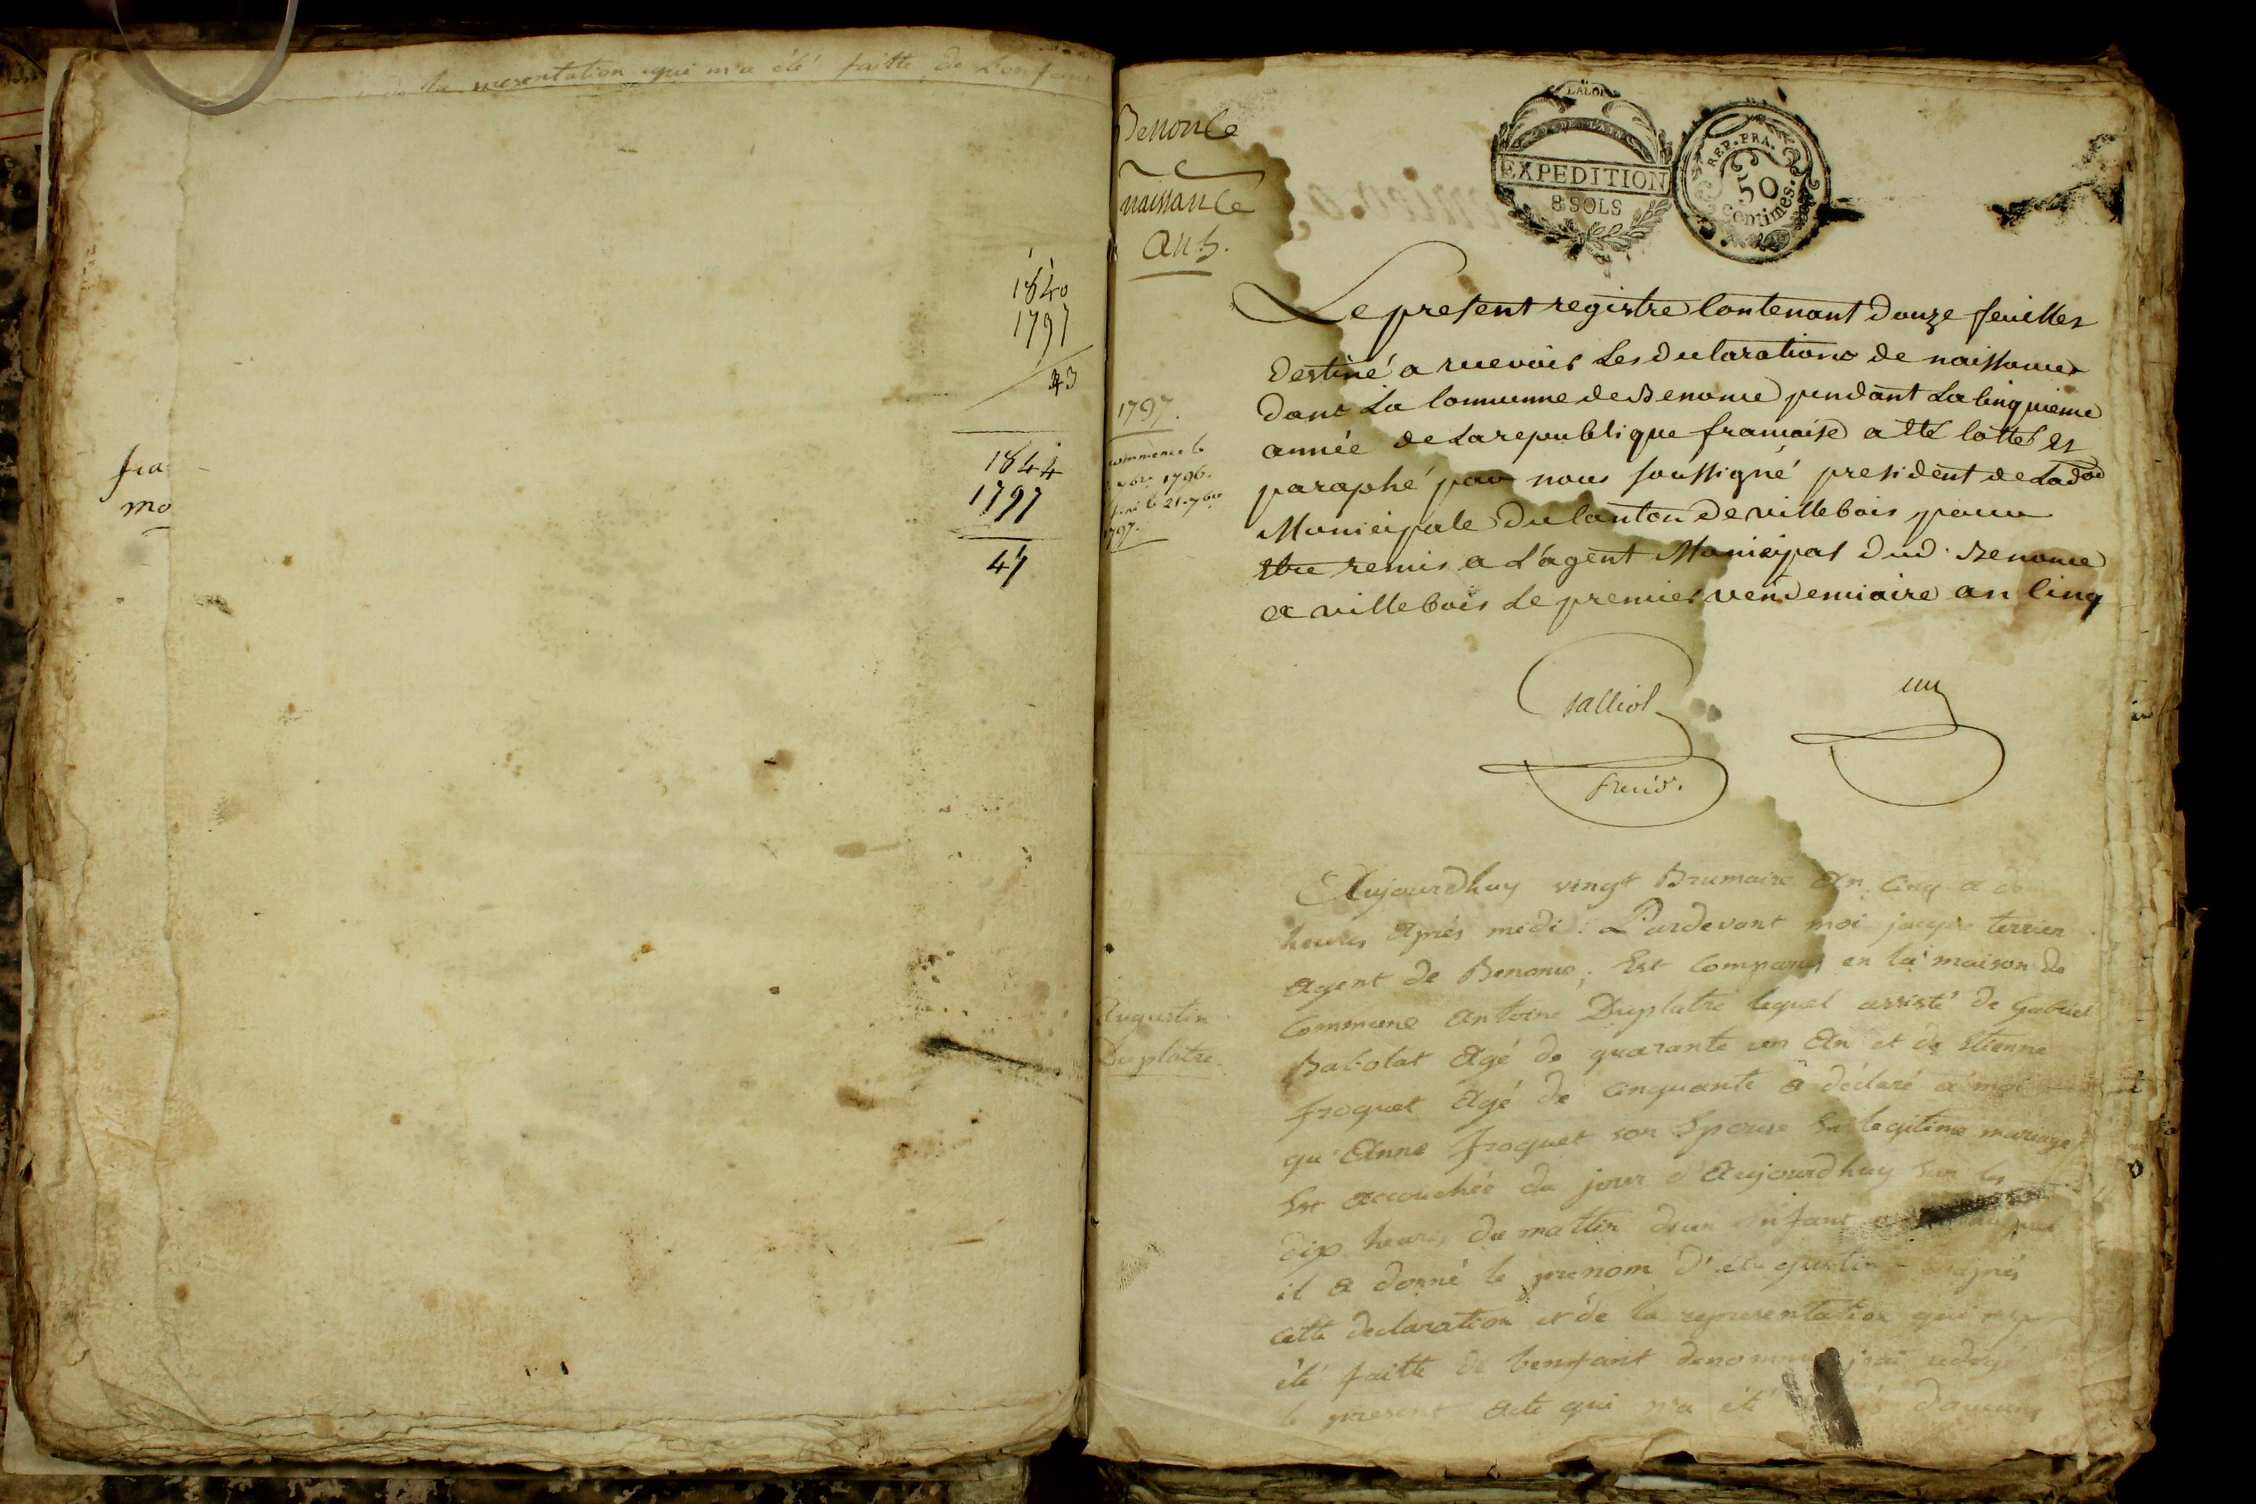 la presentation qui m'a été faitte de L'enfant
1840
1797
43
1844
1797
47
fra
mo
Benonce
naissance
An 5.
1797.
commence le
9bre 1796.
fini le 21. 7bre
1797.
LA LOI
EXPEDITION
8 SOLS
REP. FRA.
50
Centimes.
Le present registre Contenant douze feuilles
destiné a recevoir Les declarations de naissances
dans La Commune de Benonce pendant La Cinquieme
année de La republique francaise a Eté Cotté et
paraphé par nous soussigné president de Ladon
Municipale du Canton de villebois pour
Etre remis a L'agent Municipal dud. Benonce
a villebois Le premier vendemiaire an Cinq
un
Augustin
Duplâtre.
Aujourdhuy vingt Brumaire An Cinq a
heures Après midi: Pardevant moi jacque terrier
Agent de Benonce, Est Comparus en la maison de
Commune Antoine Duplatre lequel assisté de Gabriel
Babolat Agé de quarante un An et de Etienne
froquet Agé de Cinquante a déclaré a moi
qu'Anne froquet son Epouse En legitime mariage
Est accouchée du jour d'Aujourdhuy Sur les
dix heures du mattin d'un Enfant
il a donné le prenom d'Augustin D'après
cette declaration et de la representation qui m'a
été faitte de l'enfant denommé j'ai redigé
le present Acte qui n'a été d'aucuns